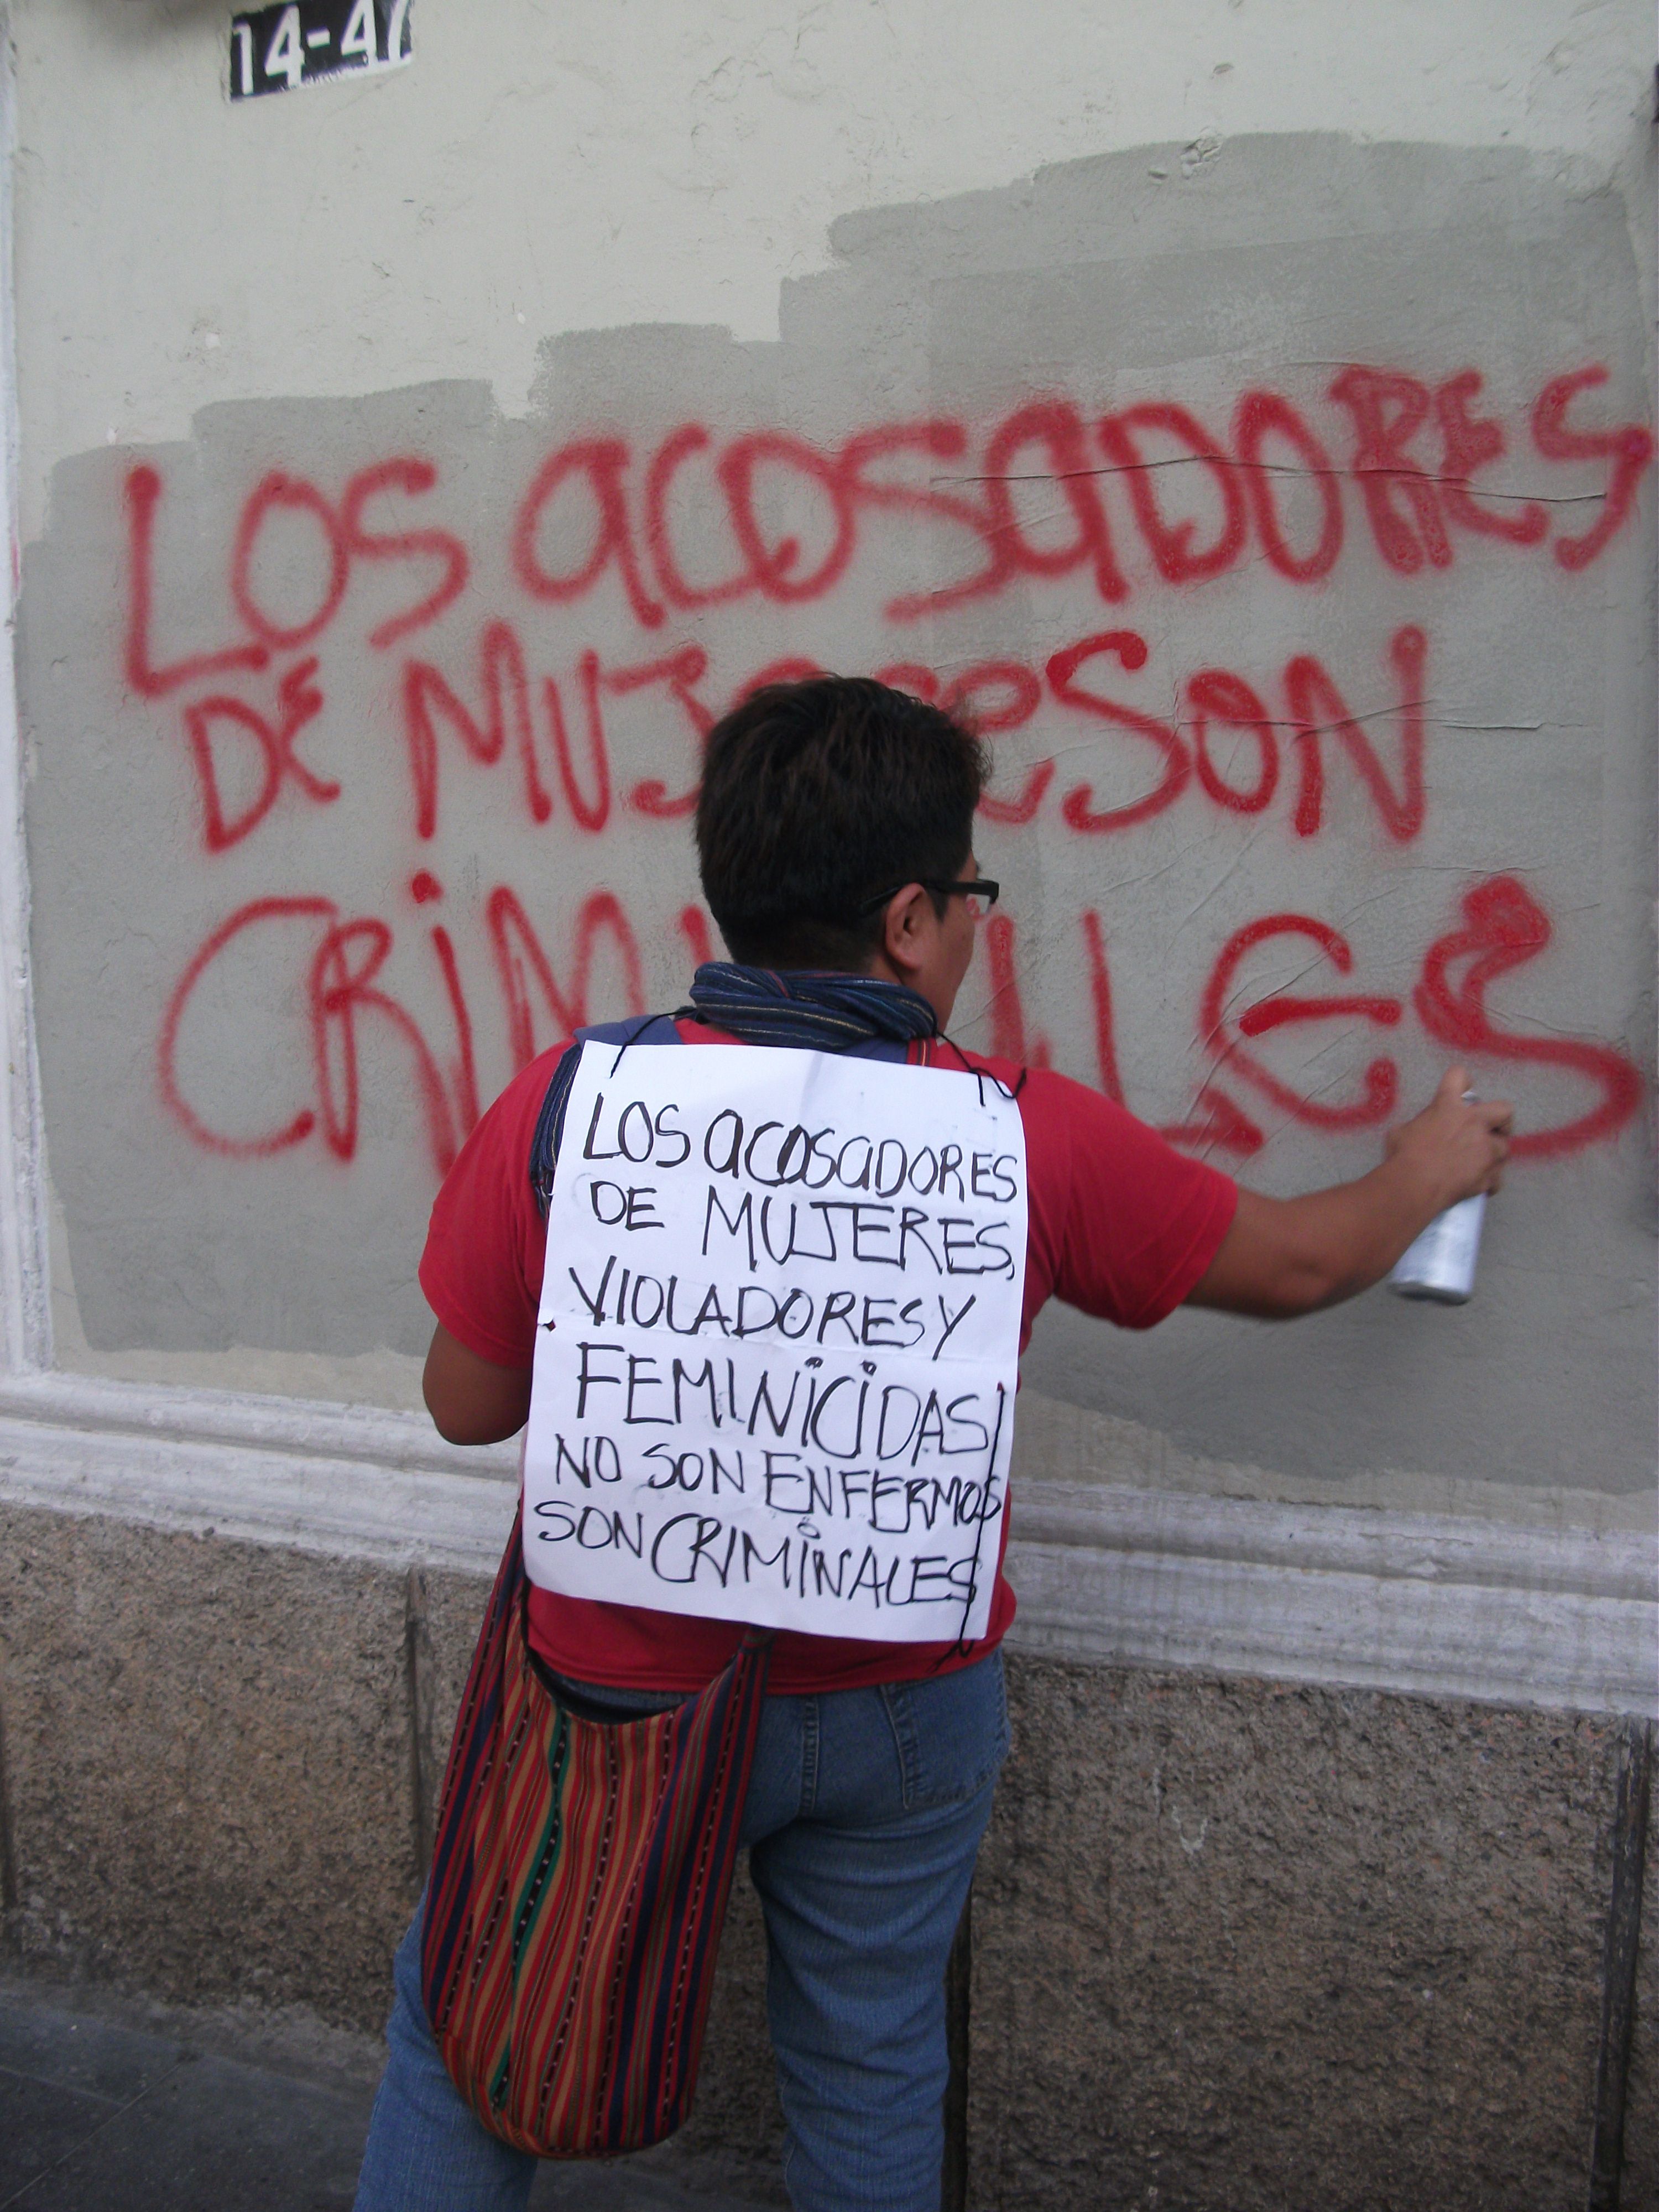 14-47
LOS acOSaDORES
DE MUJeReSON
CRiMINALES
LOS acOSaDORES
DE MUJERES,
VIOLADORES Y
FEMINiCiDAS
NO SON ENFERMOS
SON CRIMiNALES